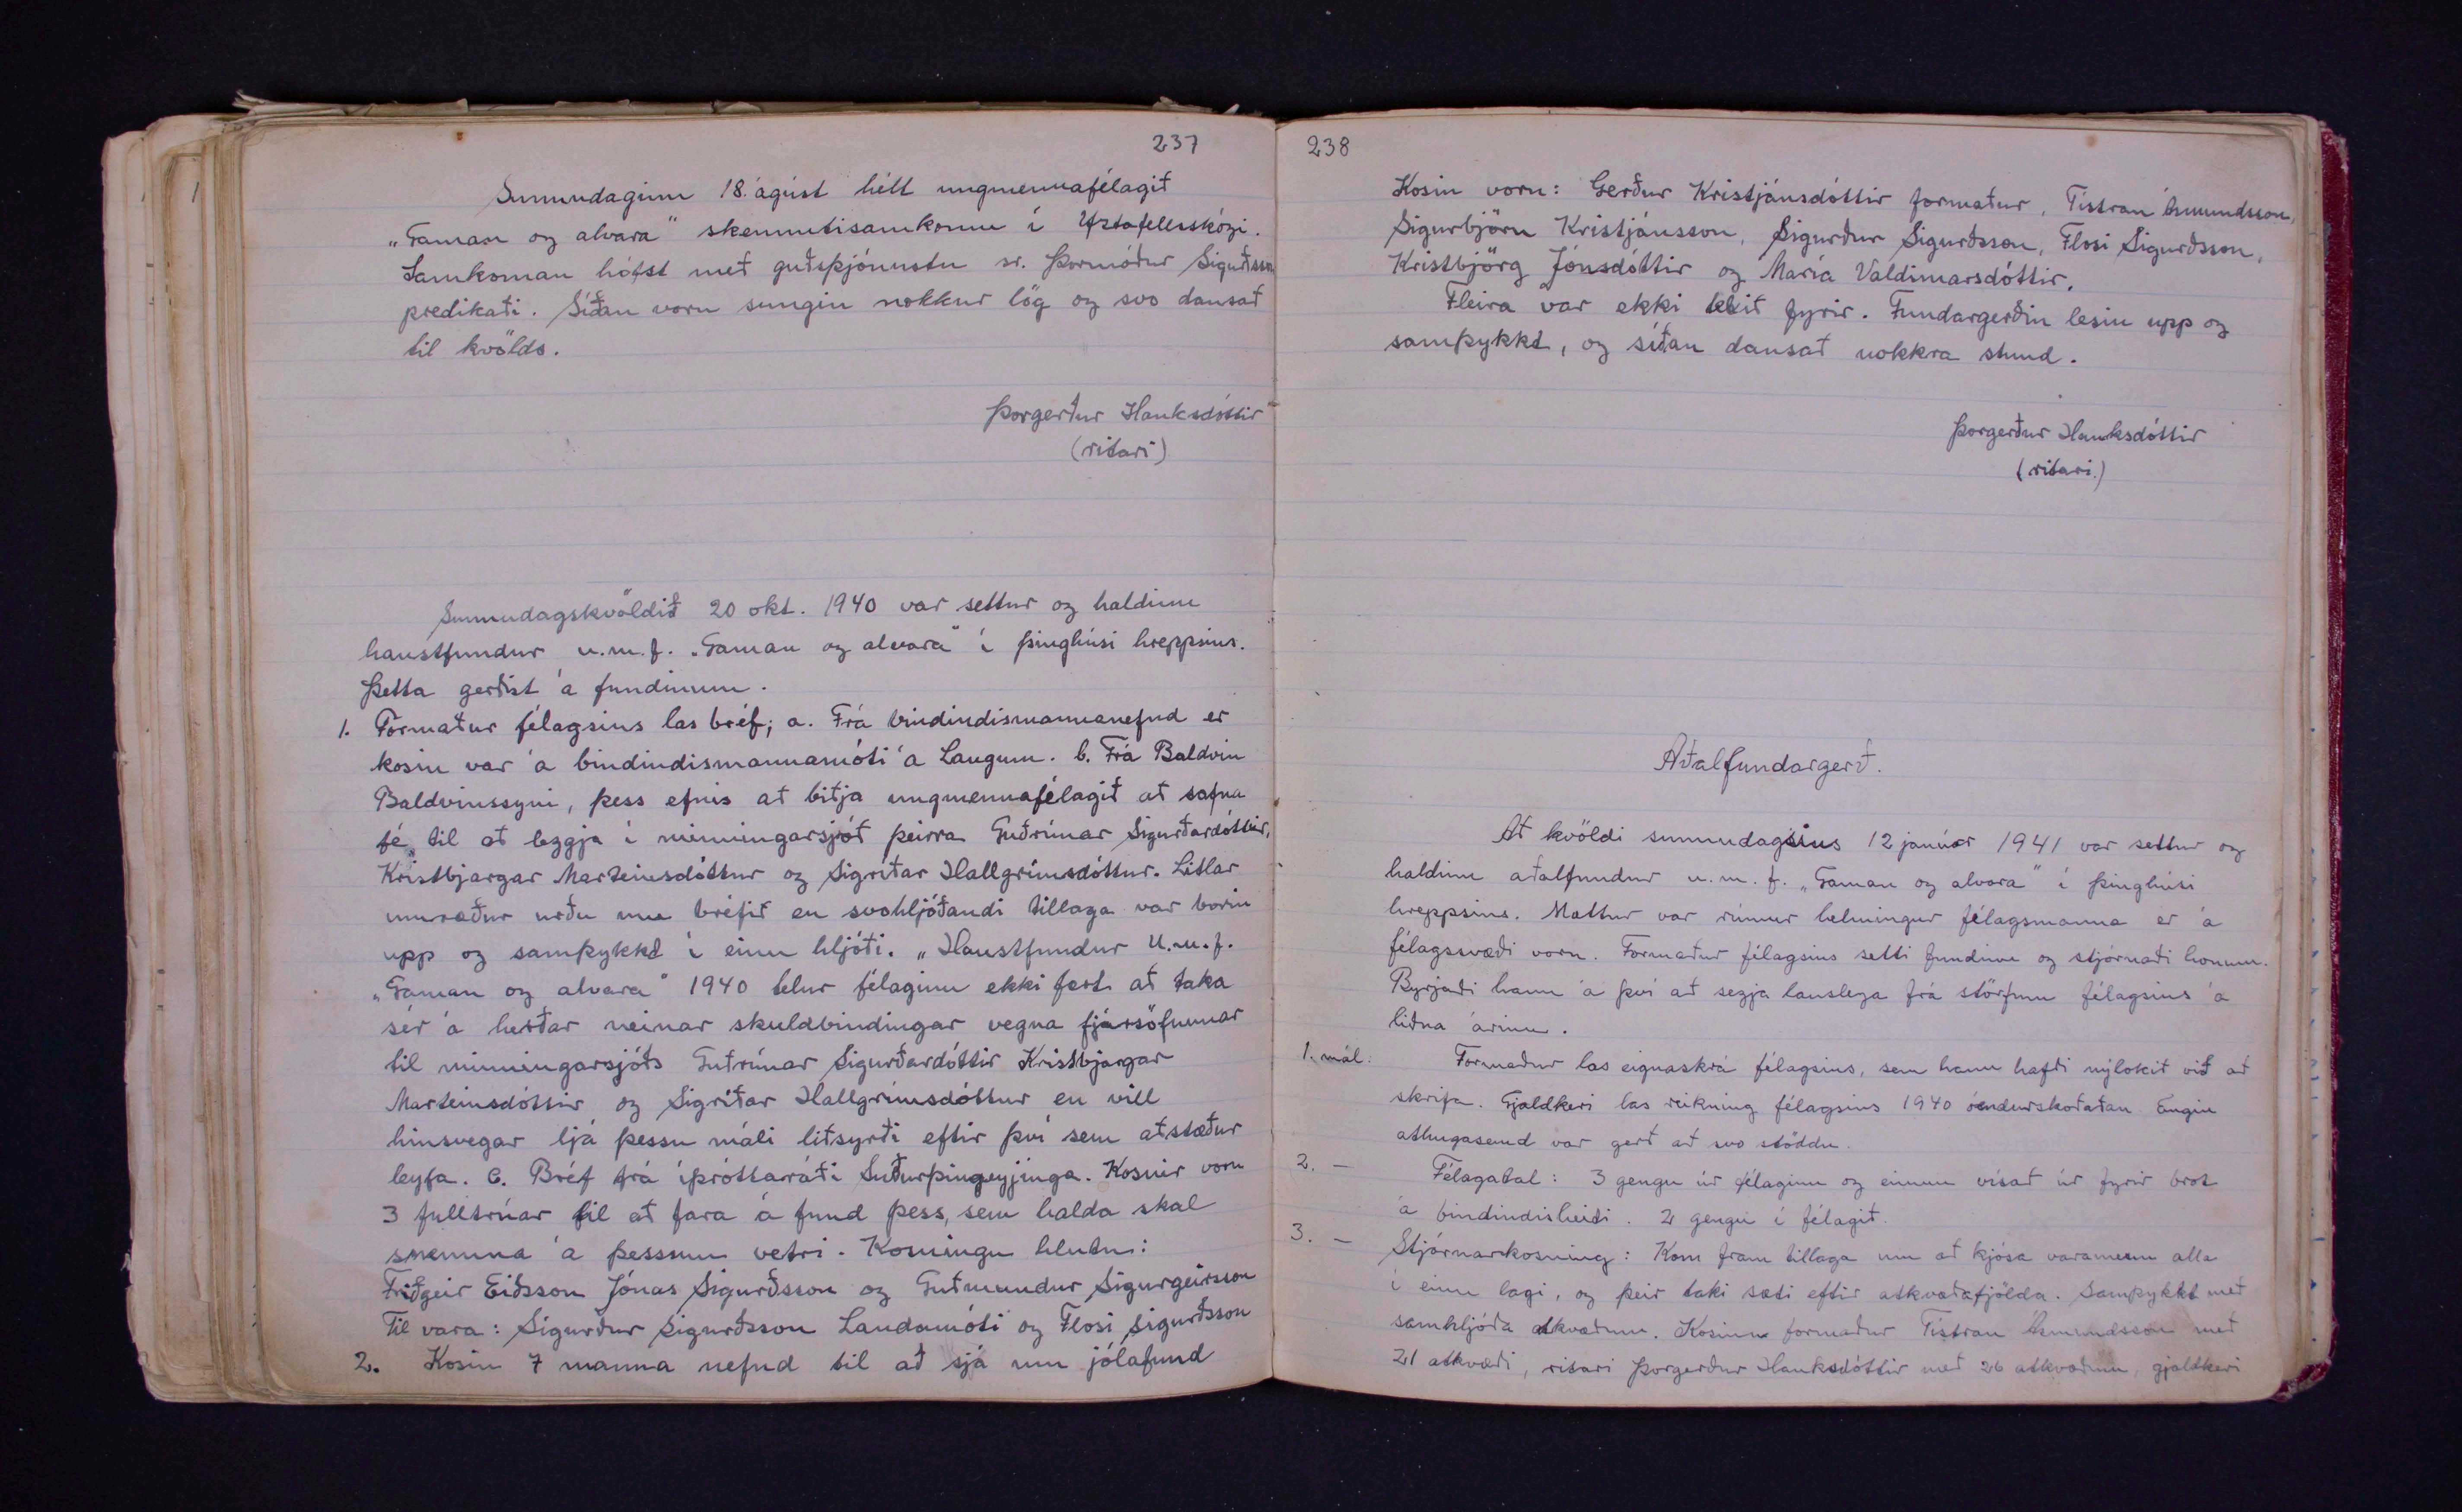 237
Sunnudaginn 18. ágúst hélt ungmennafélagið
„Gaman og alvara" skemmtisamkomu í Ystafellsskógi.
Samkoman hófst með guðsþjónustu sr. Þormóður Sigurðsson
predikaði. Síðan voru sungin nokkur lög og svo dansað
til kvölds.
Þorgerður Hauksdóttir
(ritari)
Sunnudagskvöldið 20 okt. 1940 var settur og haldinn
haustfundur u.m.f. „Gaman og alvara" í þinghúsi hreppsins.
Þetta gerðist á fundinum.
1. Formaður félagsins las bréf; a. Frá bindindismannanefnd er
kosin var á bindindismannamóti á Laugum. b. Frá Baldvin
Baldvinssyni, þess efnis að biðja ungmennafélagið að safna
fé, til að leggja í minningarsjóð þeirra Guðrúnar Sigurðardóttir,
Kristbjargar Marteinsdóttur og Sigríðar Hallgrímsdóttur. Litlar
umræður urðu um bréfið en svohljóðandi tillaga var borin
upp og samþykkt í einu hljóði. „Haustfundur U.m.f.
„Gaman og alvara" 1940 telur félaginu ekki fært að taka
sér á herðar neinar skuldbindingar vegna fjársöfnunar
til minningarsjóðs Guðrúnar Sigurðardóttir Kristbjargar
Marteinsdóttir og Sigríðar Hallgrímsdóttur en vill
hinsvegar ljá þessu máli liðsyrði eftir því sem aðstæður
leyfa. C. Bréf frá íþróttaráði Suðurþingeyjinga. Kosnir voru
3 fulltrúar til að fara á fund þess, sem halda skal
snemma á þessum vetri. Kosningu hlutu:
Friðgeir Eiðsson Jónas Sigurðsson og Guðmundur Sigurgeirsson
Til vara: Sigurður Sigurðsson Landamóti og Flosi Sigurðsson
2. Kosin 7 manna nefnd til að sjá um jólafund
238
Kosin voru: Gerður Kristjánsdóttir formaður, Tístran Ásmundsson,
Sigurbjörn Kristjánsson, Sigurður Sigurðsson, Flosi Sigurðsson,
Kristbjörg Jónsdóttir og María Valdimarsdóttir.
Fleira var ekki tekið fyrir. Fundargerðin lesin upp og
samþykkt, og síðan dansað nokkra stund.
Þorgerður Hauksdóttir
(ritari.)
Aðalfundargerð.
Að kvöldi sunnudagsins 12 janúar 1941 var settur og
haldinn aðalfundur u.m.f. „Gaman og alvara" í þinghúsi
hreppsins. Mættur var rúmur helmingur félagsmanna er á
félagssvæði voru. Formaður félagsins setti fundinn og stjórnaði honum.
Byrjaði hann á því að segja lauslega frá störfum félagsins á
liðna árinu.
1. mál: Formaður las eignaskrá félagsins, sem hann hafði nýlokið við að
skrifa. Gjaldkeri las reikning félagsins 1940 óendurskoðaðan. Engin
athugasemd var gerð að svo stöddu.
2. — Félagatal: 3 gengu úr félaginu og einum vísað úr fyrir brot
á bindindisheiti. 2 gengu í félagið.
3. — Stjórnarkosning: Kom fram tillaga um að kjósa varamenn alla
í einu lagi, og þeir taki sæti eftir atkvæðafjölda. Samþykkt með
samhljóða atkvæðum. Kosinn formaður Tístran Ásmundsson með
21 atkvæði, ritari Þorgerður Hauksdóttir með 26 atkvæðum, gjaldkeri